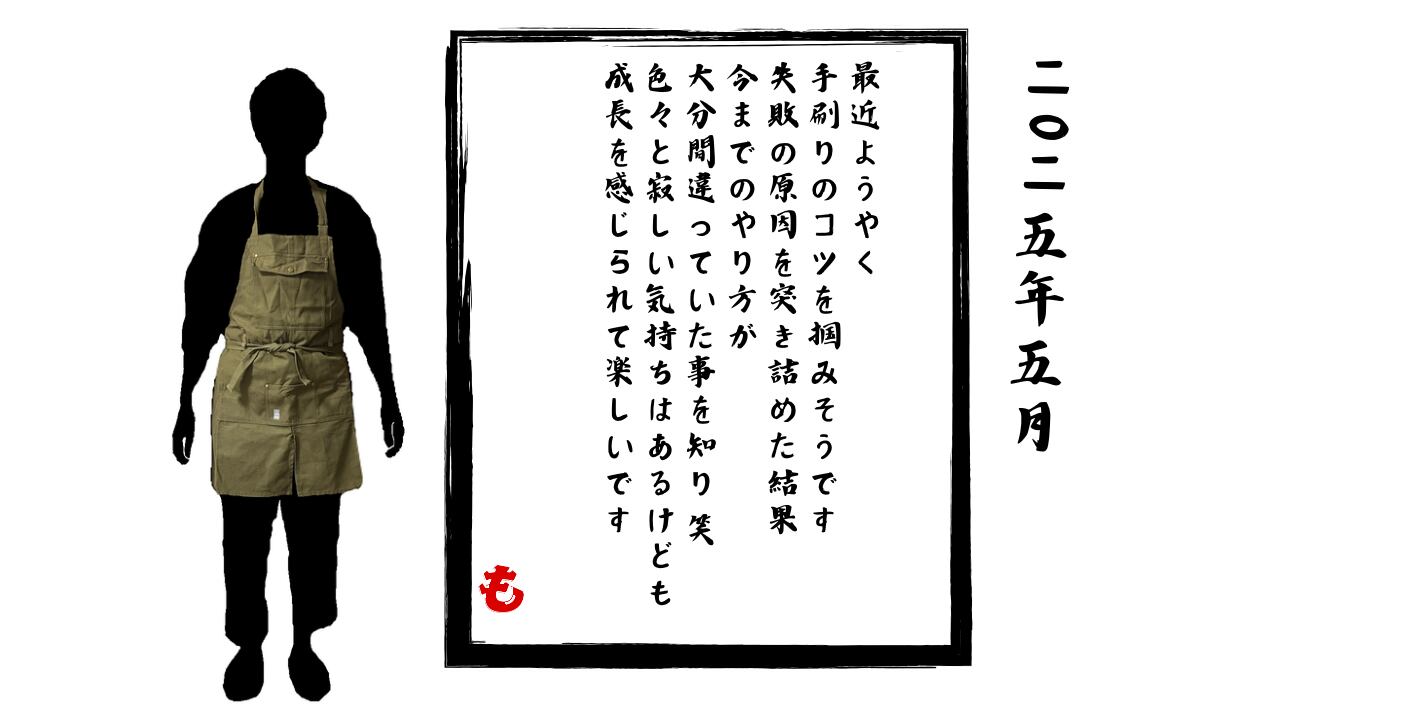 二〇二五年五月
最近ようやく
手刷りのコツを掴みそうです
失敗の原因を突き詰めた結果
今までのやり方が
大分間違っていた事を知り 笑
色々と寂しい気持ちはあるけども
成長を感じられて楽しいです
も